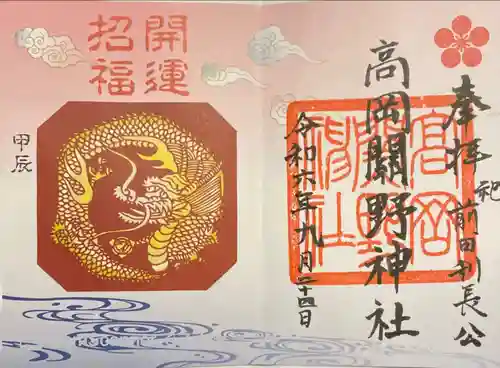 奉拝
祀 前田利長公
高岡關野神社
高岡關野神社
令和六年九月二十四日
開運
招福
甲辰